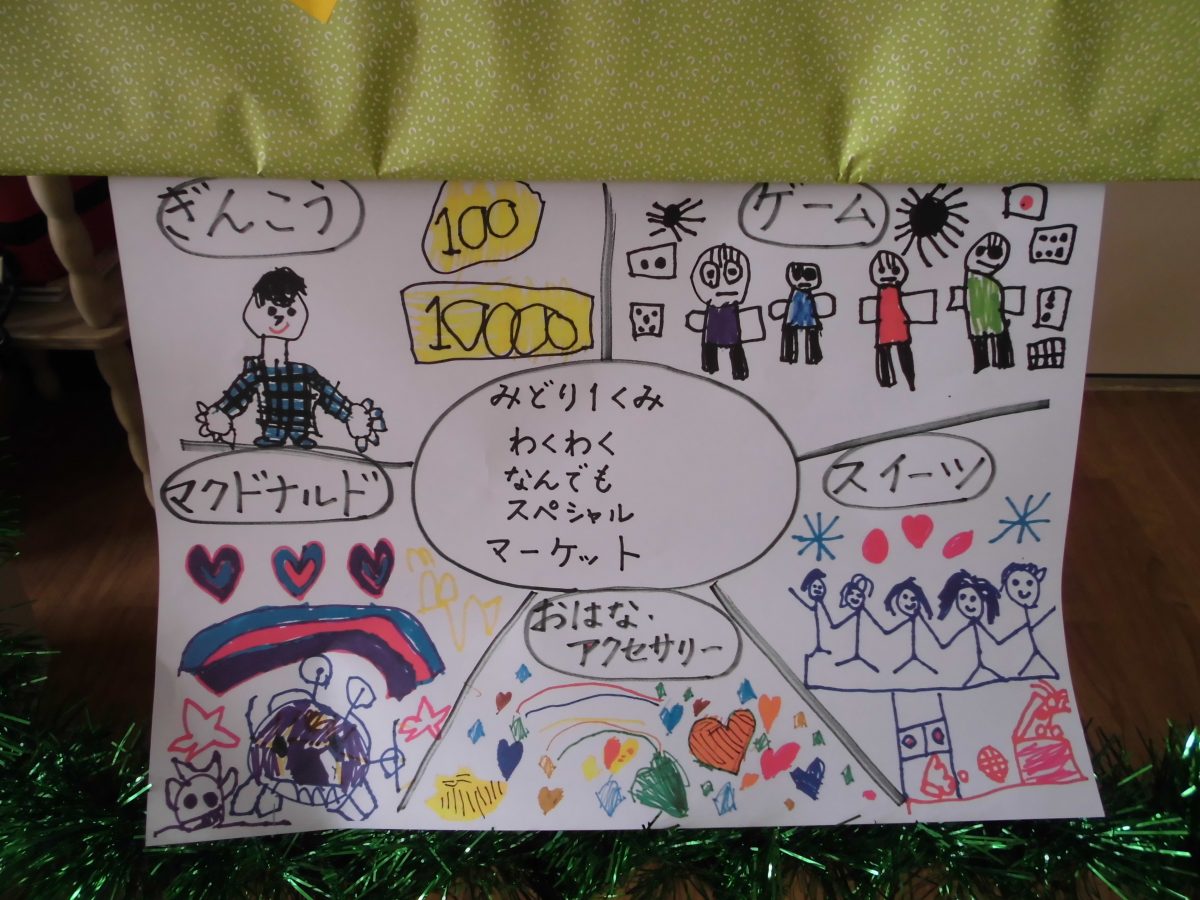 ぎんこう
100
10000
ゲーム
みどり1くみ
わくわく
なんでも
スペシャル
マーケット
マクドナルド
スイーツ
おはな・
アクセサリー